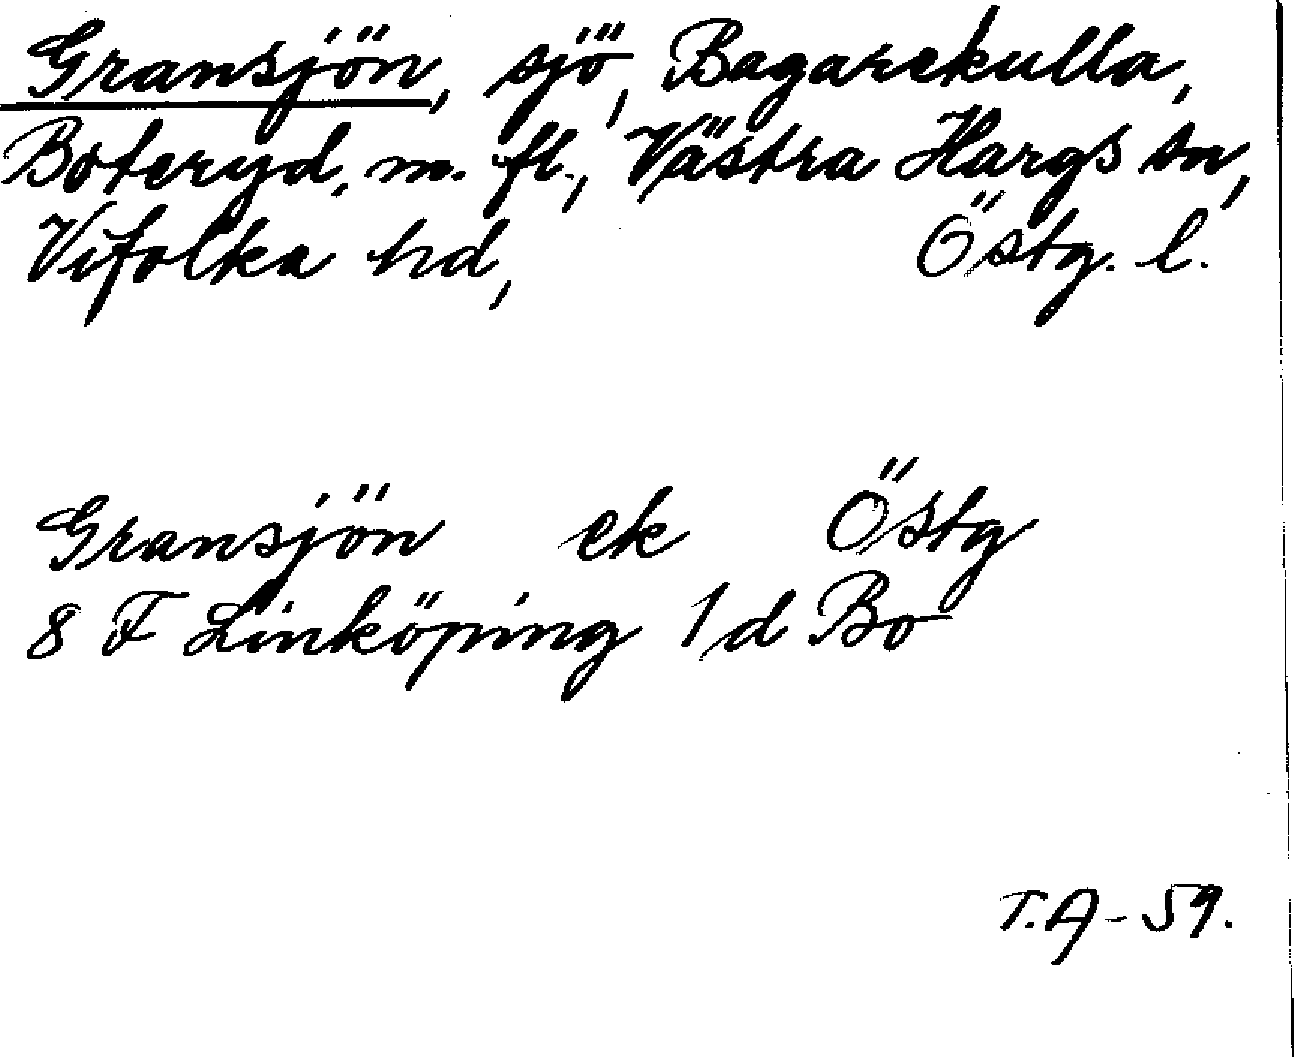 Gransjön, sjö, Bagarekulla,
Boteryd, m. fl., Västra Hargs sn,
Vifolka hd, Östg. l.
Gransjön ek Östg
8 F Linköping 1d Bo
T.A-59.